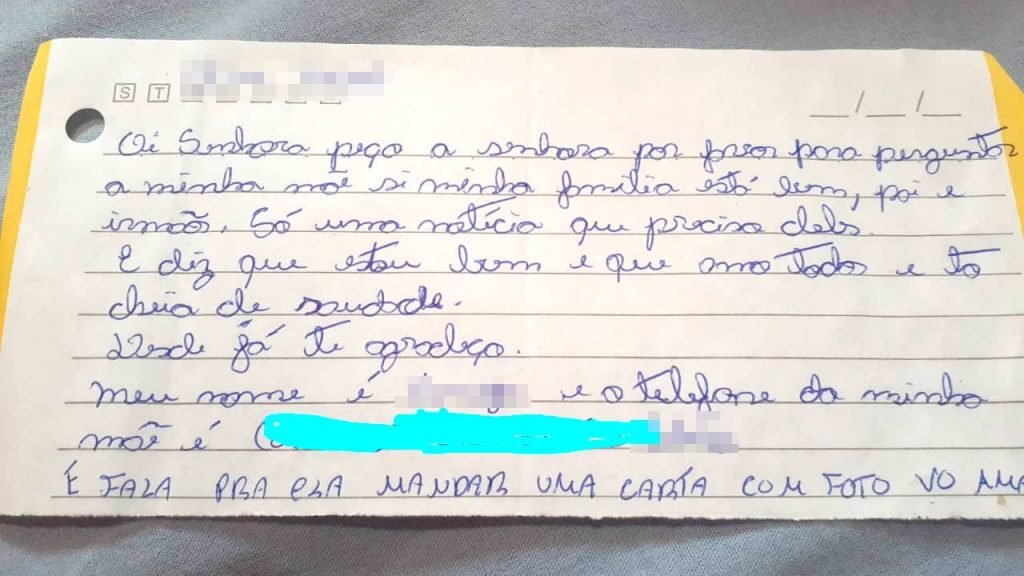 S T
__/__/__
Oi Senhora peço a senhora por favor para perguntar
a minha mãe si minha família está bem, pai e
irmãs. Só uma nótícia que preciso
E diz que estou bem e que amo todos e to
cheia de saudade.
Desde já te agradeço.
Meu nome é e o telefone da minha
mãe é (
É FALA PRA ELA MANDAR UMA CARTA COM FOTO VO AMA